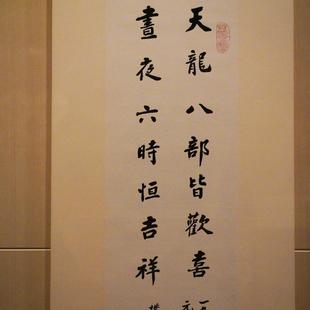 天龍八部皆歡喜
晝夜六時恒吉祥